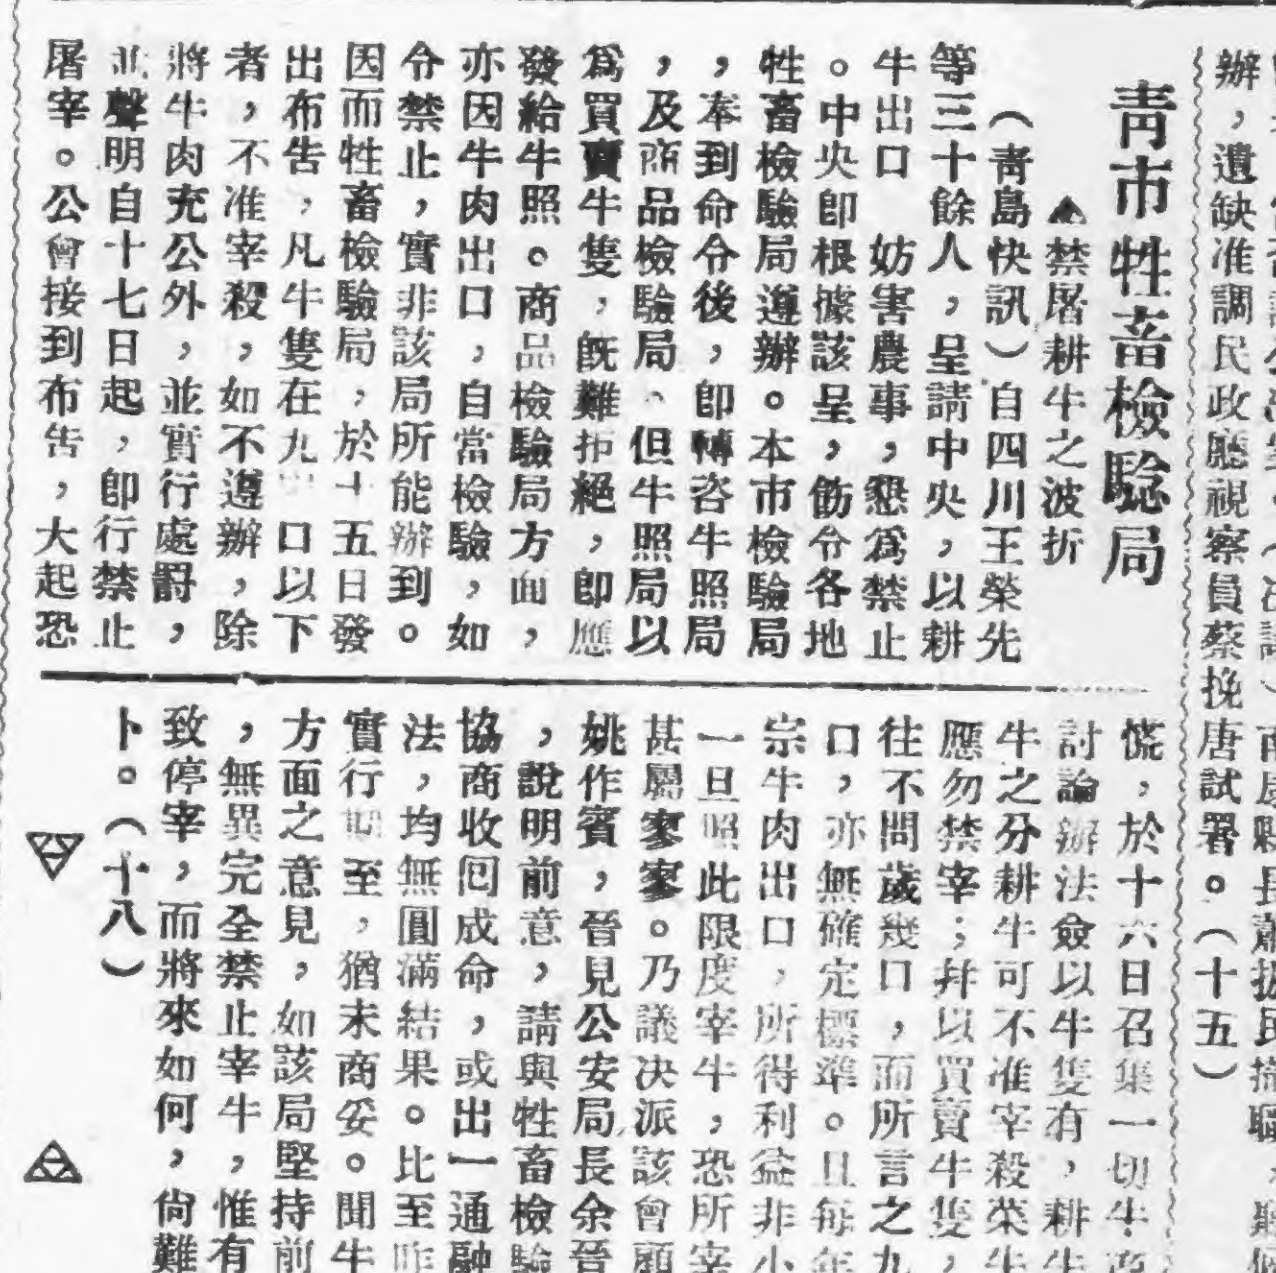 辦，遺缺准調民政廳視察員蔡挽唐試署。（十五）
青市牲畜檢驗局
▲禁屠耕牛之波折
（青島快訊）自四川王榮先
等三十餘人，呈請中央，以耕
牛出口　妨害農事，懇爲禁止
。中央卽根據該呈，飭令各地
牲畜檢驗局遵辦。本市檢驗局
，奉到命令後，卽轉咨牛照局
，及商品檢驗局、但牛照局以
爲買賣牛隻，旣難拒絕，卽應
發給牛照。商品檢驗局方面，
亦因牛肉出口，自當檢驗，如
令禁止，實非該局所能辦到。
因而牲畜檢驗局，於十五日發
出布告，凡牛隻在九　口以下
者，不准宰殺，如不遵辦，除
將牛肉充公外，並實行處罰，
並聲明自十七日起，卽行禁止
屠宰。公會接到布告，大起恐
慌，於十六日召集一切牛商
討論辦法僉以牛隻有，耕牛
牛之分耕牛可不准宰殺菜牛
應勿禁宰；幷以買賣牛隻，
往不問歲幾口，而所言之九
口，亦無確定標準。且每年
宗牛肉出口，所得利益非小
一旦照此限度宰牛，恐所宰
甚屬寥寥。乃議决派該會顧
姚作賓，晉見公安局長余晉
，說明前意，請與牲畜檢驗
協商收囘成命，或出一通融
法，均無圓滿結果。比至昨
實行期至，猶未商妥。聞牛
方面之意見，如該局堅持前
，無異完全禁止宰牛，惟有
致停宰，而將來如何，尙難
卜。（十八）